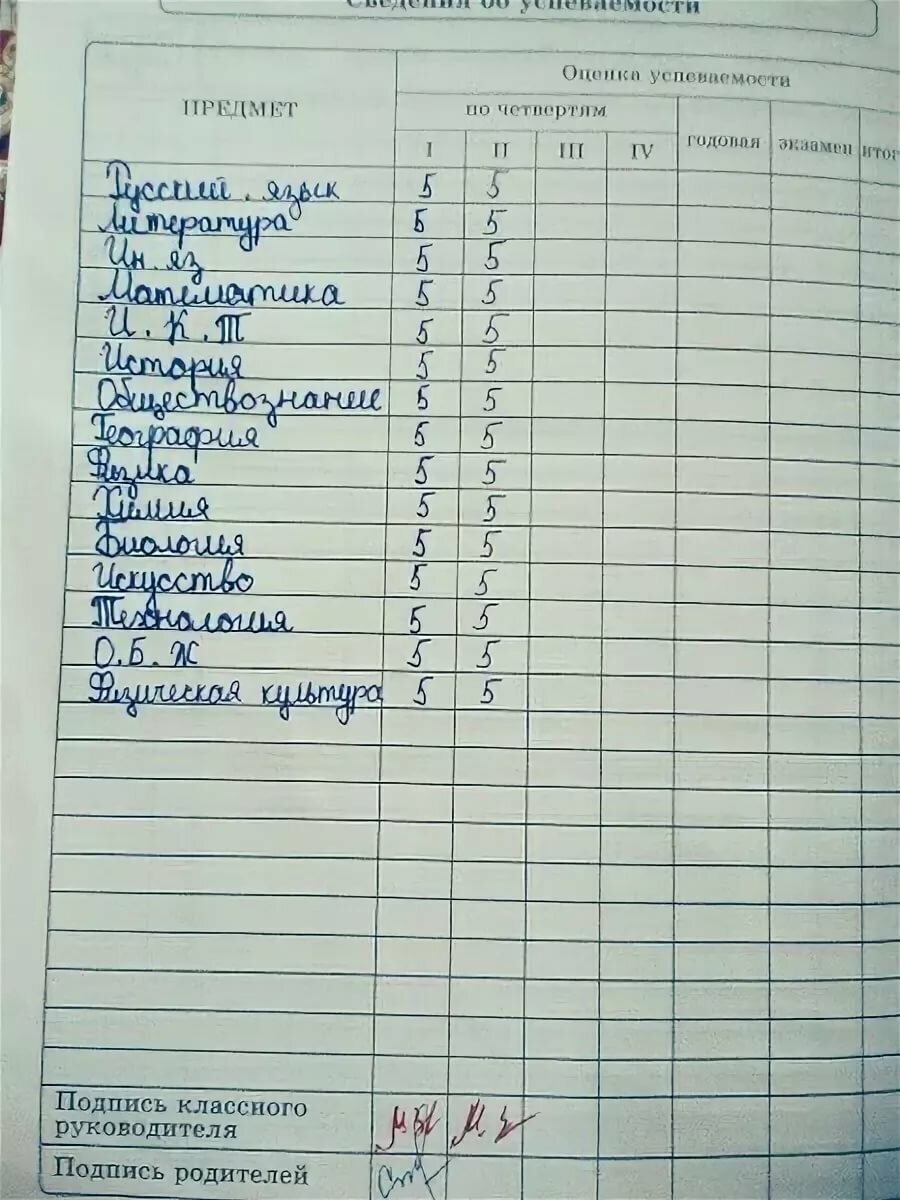 Сведения об успеваемости
ПРЕДМЕТ
Оценка успеваемости
по четвертям
годовая экзамен итог
I II III IV
Русский . язык 5 5
Литература 5 5
Ин. яз 5 5
Математика 5 5
И. К. Т 5 5
История 5 5
Обществознание 5 5
География 5 5
Физика 5 5
Химия 5 5
Биология 5 5
Искусство 5 5
Технология 5 5
О.Б.Ж 5 5
Физическая культура 5 5
Подпись классного
руководителя
Подпись родителей